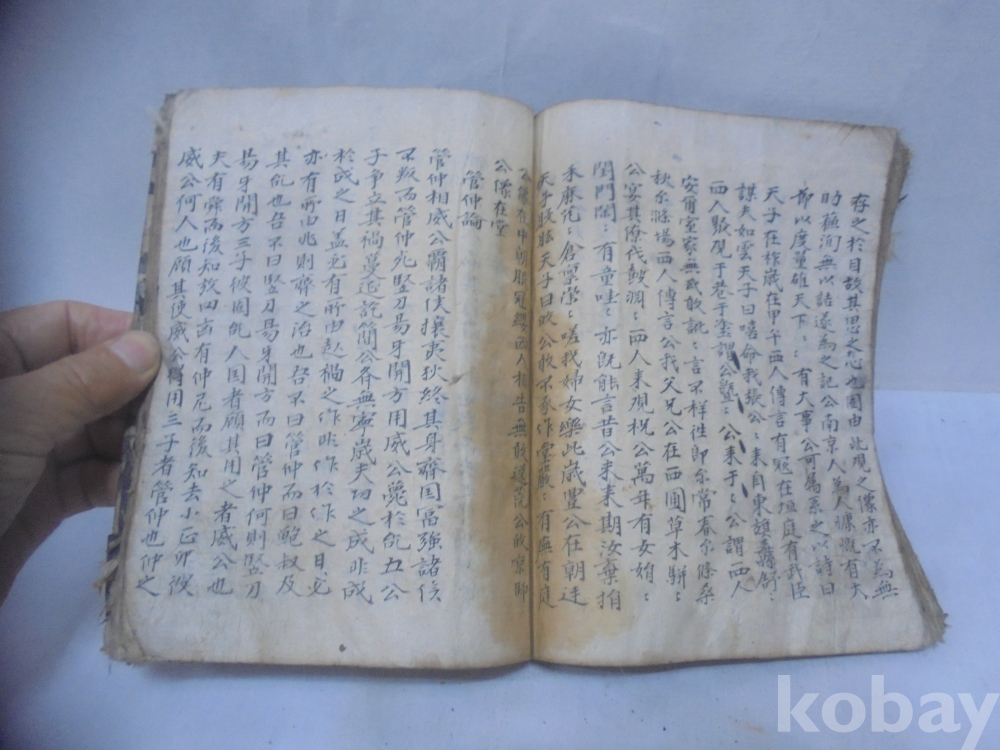 存之於目故其思之於心也固由此觀之像亦不為無
助蘇洵無以詰遂為之記公南京人為人慷慨有大
節以度量雄天下：：有大事公可屬系之以詩曰
天子在祚歲在甲午西人傳言有寇在垣庭有武臣
謀夫如雲天子曰嘻命我張公：来自東旗纛舒：
西人聚观于巷于塗謂公暨：公来于：公謂西人
安爾室家無敢或訛：言不祥往即尔常春尔條桑
秋尔滌場西人稽首公我父兄公在西囿草木駢：
公宴其僚伐鼓淵：西人来观祝公萬年有女娟：
閨門閑：有童哇：亦既能言昔公未来期汝棄捐
禾麻芃：倉庾崇：嗟我婦女樂此歲豊公在朝廷
天子股肱天子曰歸公敢不承作堂嚴：有廡有庭
公像在中朝服冠纓西人相告無敢逸荒公歸京師
公像在堂
管仲論
管仲相威公霸諸侯攘夷狄終其身齊国富強諸侯
不叛而管仲死竪刀易牙開方用威公薨於乱五公
子争立其禍蔓延訖簡公齊無寧歲夫功之成非成
於成之日盖必有所由起禍之作非作於作之日必
亦有所由兆則齊之治也吾不曰管仲而曰鮑叔及
其乱也吾不曰竪刀易牙開方而曰管仲何則竪刀
易牙開方三子彼固乱人国者顧其用之者威公也
夫有舜而後知放四凶有仲尼而後知去小正卯彼
威公何人也顧其使威公得用三子者管仲也仲之
kobay